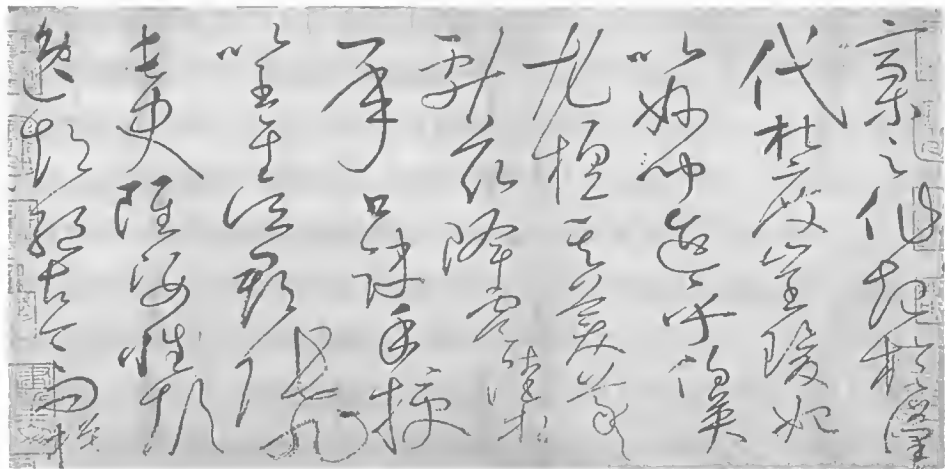 藁之作起於漢
代杜度崔瑗始
以妙聞迨乎伯英
尤擅其美羲
獻茲降虞陸相
承口訣手授
以至于吳郡張旭
長史雖姿性顛
逸超絕古今而模